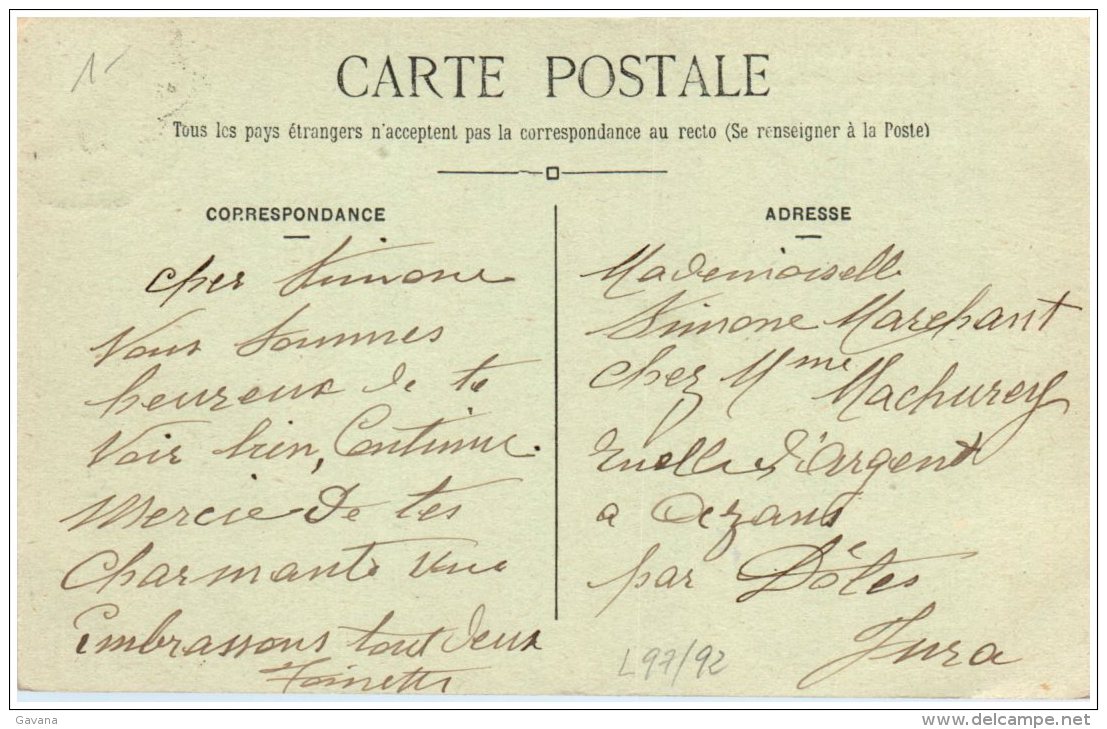 1-
CARTE POSTALE
Tous les pays étrangers n'acceptent pas la correspondance au recto (Se renseigner à la Poste)
CORRESPONDANCE
cher Simone
Nous sommes
heureux de te
voir bien, Continue.
Mercie de tes
charmante vue
Embrassons tout deux
Toinette
ADRESSE
Mademoiselle
Simone Marchant
chez Mme
Machurey
Ruelle d'Argent
a Azans
par Dôles
Jura
L97/92
Gavana
delcampe.net